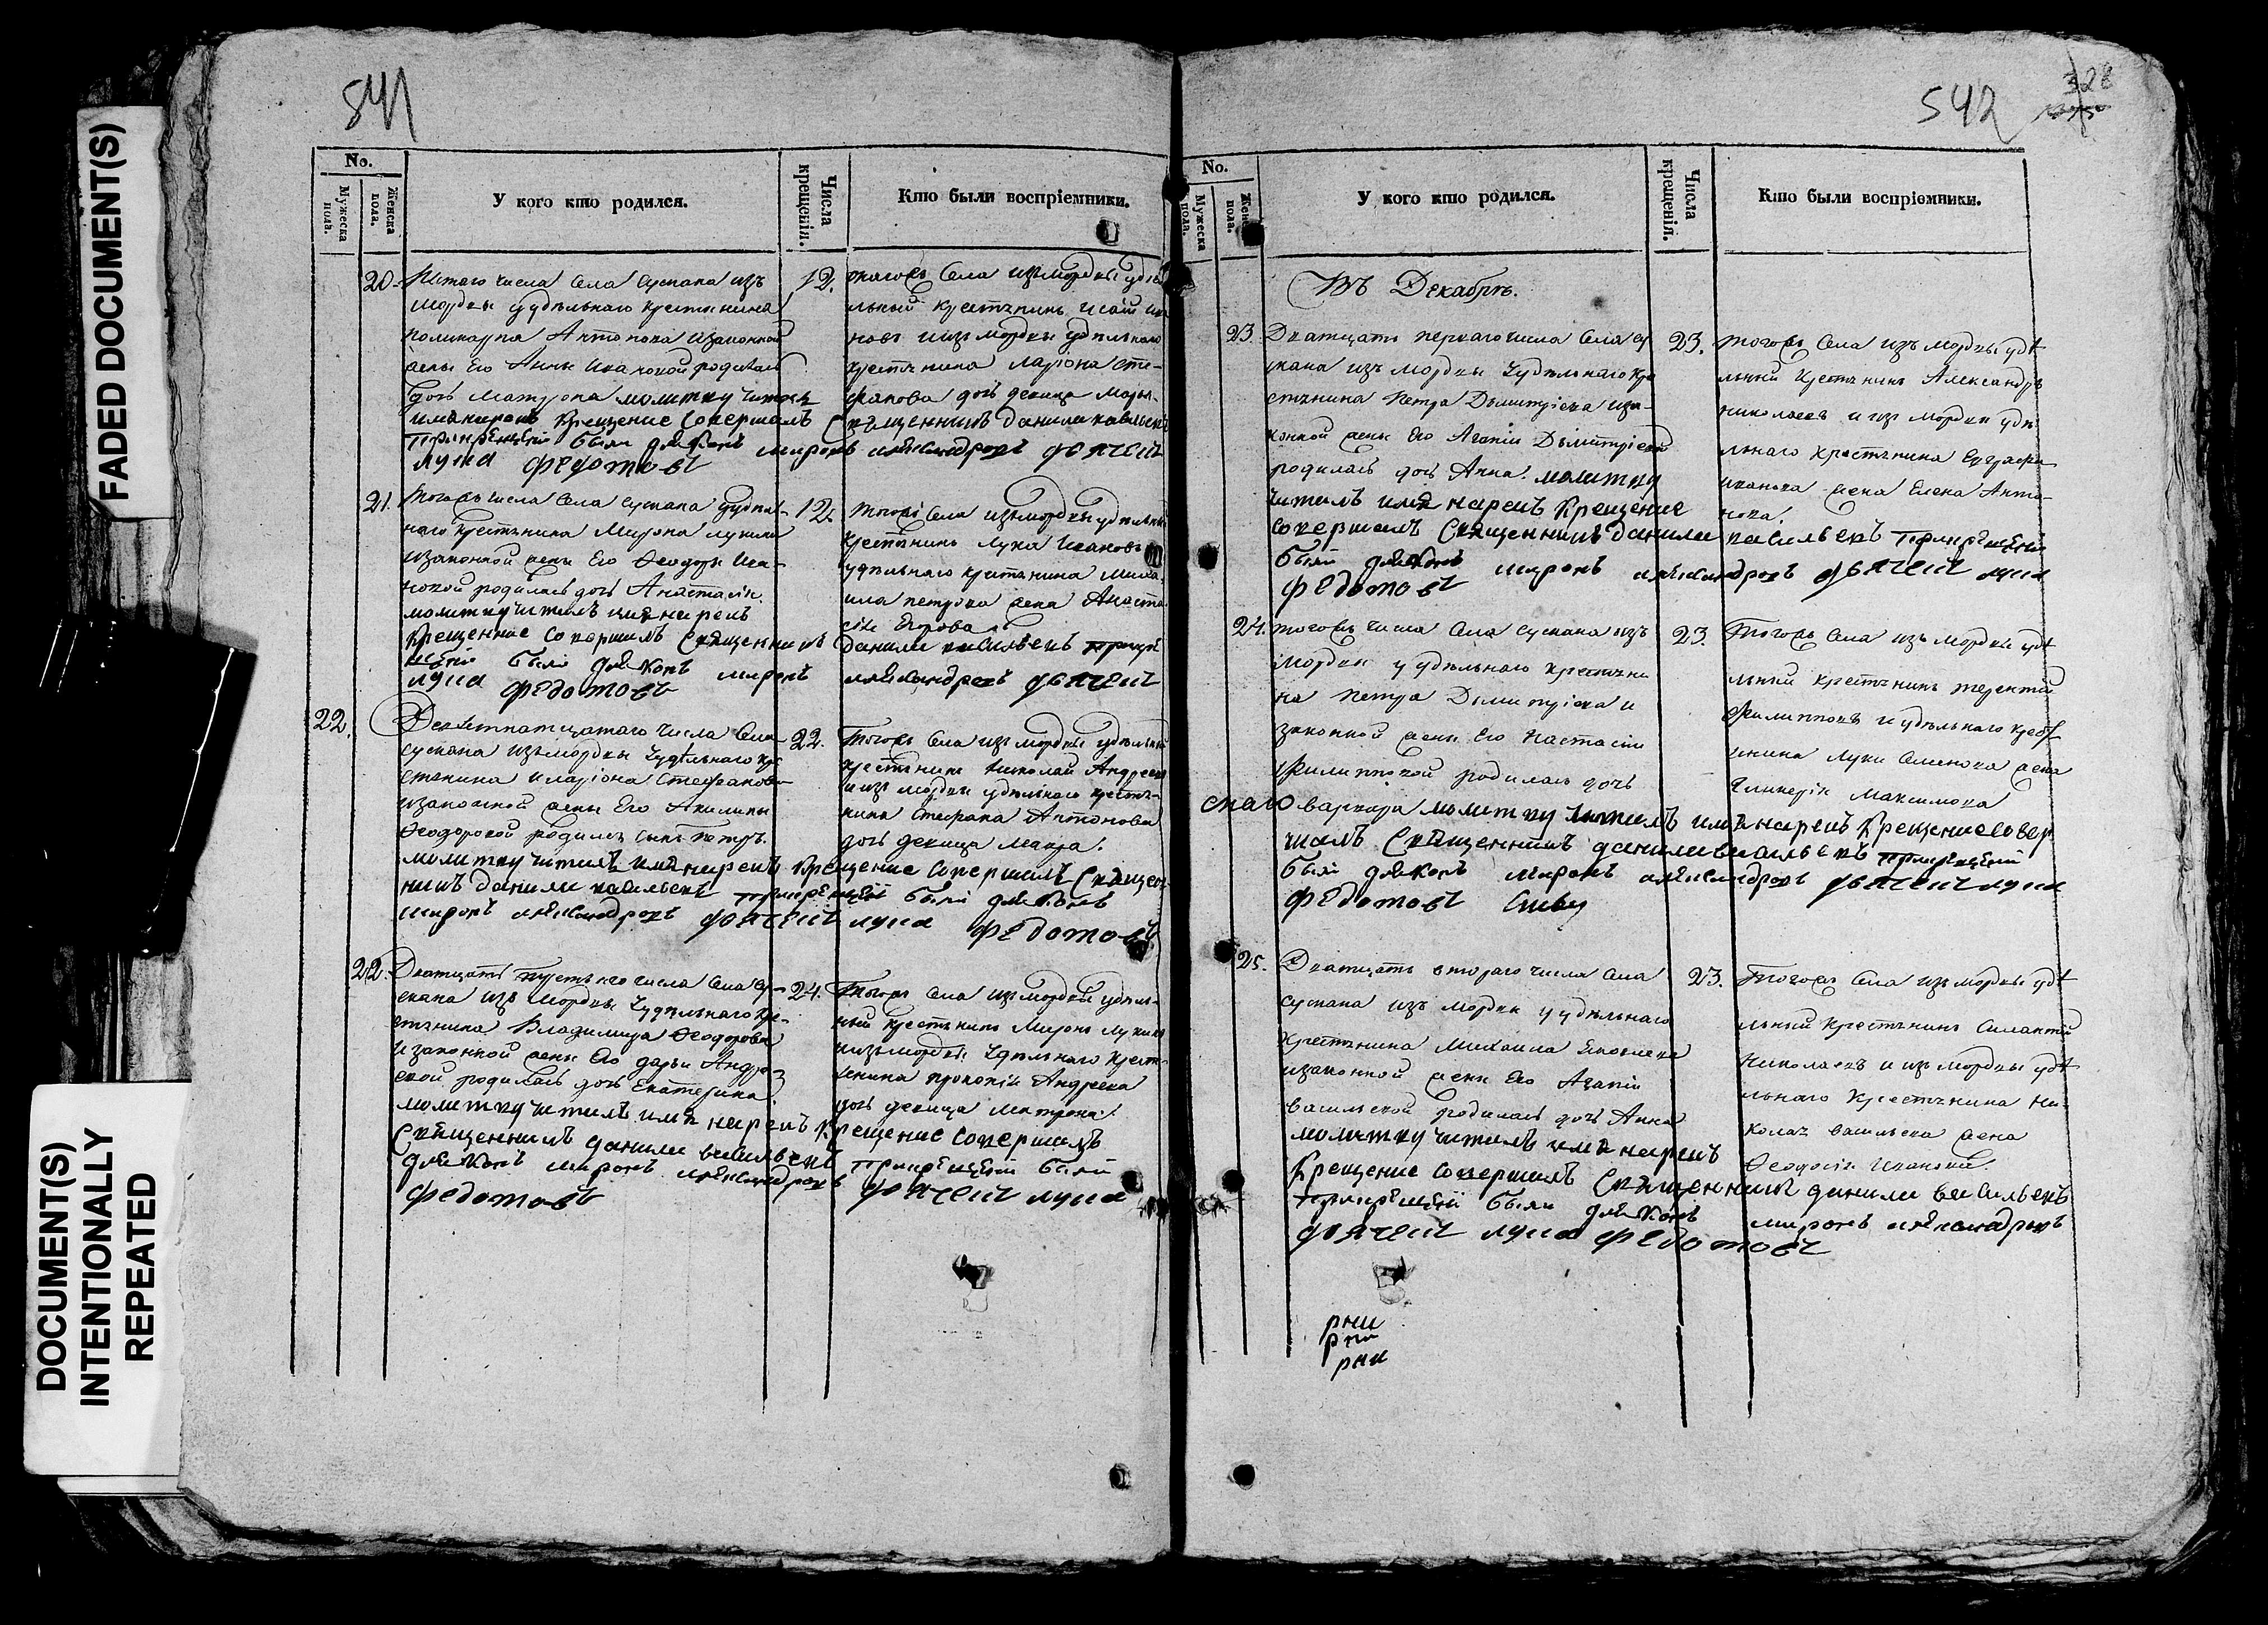 FADED DOCUMENT(S)
DOCUMENT(S)
INTENTIONALLY
REPEATED
541
No.
Мужеска пола.
Женска пола.
У кого кто родился.
Числа крещенія.
Кто были воспріемники.
20.
числа Села Сускана изъ
мордвы удѣльнаго крестьянина
поликарпа Антонова изаконной
жены Его Анны Ивановой родилась
дочь Матрона молитву читалъ
имянарекъ крещение совершалъ
были дьяконъ
лука федотовъ
12.
тогожъ Села измордвы удѣ
льный крестьянинъ
новъ иизъ мордвы удѣльнаго
крестьянина ларіона сте-
фанова дочь девица Марья
Священникъ данила васильевъ
миронъ александровъ дьячекъ
21.
тогожъ числа Села сускана удѣль-
наго крестьянина Мирона лукина
изаконной жены Его Ѳеодоры Ива-
новой родилась дочь Анастасія.
молитву читалъ имянарекъ
Крещение совершалъ Священникъ
были дьяконъ миронъ
лука федотовъ
12.
тогожъ Села измордвы удѣльный
крестьянинъ лука Ивановъ
удѣльнаго крестьянина Миха-
ила петрова жена Анаста
сія Егорова
данила васильевъ
александровъ дьячекъ
22.
Девятнатцатаго числа Села
сускана измордвы Уудѣльнаго кре
стьянина иларіона Стефанова
изаконной жены Его Акилины
Ѳеодоровой родился сынъ петръ.
молитву читалъ имянарекъ крещение совершалъ Священ
никъ данила васильевъ были дьяконъ
миронъ александровъ дьячекъ лука федотовъ
22.
тогожъ Села изъ мордвы удѣльный
крестьянинъ Николай Андреевъ
иизъ мордвы удѣльнаго кресть-
нина Стефана Антонова
дочь девица Мавра.
22.
Дватцать третьяго числа Села Су-
скана изъ мордвы Уудѣльнаго кре-
стьянина Владимира Ѳеодорова
изаконной жены Его дарьи Андре-
евой родилась дочь Екатерина.
молитву читалъ имя нарекъ крещение совершалъ
Священникъ данила васильевъ были
дьяконъ миронъ александровъ дьячекъ лука
федотовъ
24.
тогожъ Села измордвы удѣль-
ный крестьянинъ Миронъ лукинъ
иизъмордвы Удѣльнаго крест-
янина прокопія Андреева
дочь девица матрона.
542
328
No.
Мужеска пола.
У кого кто родился.
Числа крещенія.
Кто были воспріемники.
Въ Декабрѣ.
23.
Дватцать перваго числа Села су
скана изъ мордвы Уудѣльнаго кре
стьянина петра Дьмитріева иза-
конной жены Его Агапіи Дьмитріевой
родилась дочь Анна. молитву
читалъ имя нарекъ крещение
совершалъ Священникъ данила васильевъ
были дьяконъ миронъ александровъ дьячекъ лука
федотовъ
23.
тогожъ Села изъ мордвы удѣ
льный крестьянинъ Александръ
николаевъ и из мордвы удѣ
льнаго крестьянина
иванова жена Елена Анто-
нова.
24.
тогожъ числа Села сускана изъ
мордвы у удѣльнаго крестьяни
на петра Дьмитріева и
законной жены Его Настасіи
филипповой родилась дочь
варвара молитву читалъ имянарекъ Крещениесовер
шалъ Священникъ данилавасильевъ
были дьяконъ миронъ александровъ дьячекълука
федотовъ
23.
Тогожъ Села изъ мордвы удѣ
льный крестьянинъ терентій
филипповъ и удѣльнаго крестья
нина луки Семенова жена
Гликерія Максимова
25.
Дватцать втораго числа Села
сускана изъ мордвы у удѣльнаго
крестьянина Михаила яковлева
изаконной жены Его Агапіи
васильевой родилась дочь Анна
молитву читалъ имя нарекъ
Крещение совершалъ Священникъ данила васильевъ
были дьяконъ миронъ александровъ
дьячекъ лука федотовъ
23.
тогожъ Села изъ мордвы удѣ
льный крестьянинъ Силантій
николаевъ и изъ мордвы удѣ
льнаго крестьянина Ни-
колая васильева жена
Ѳеодосія Иванова.
рни
рни
рни